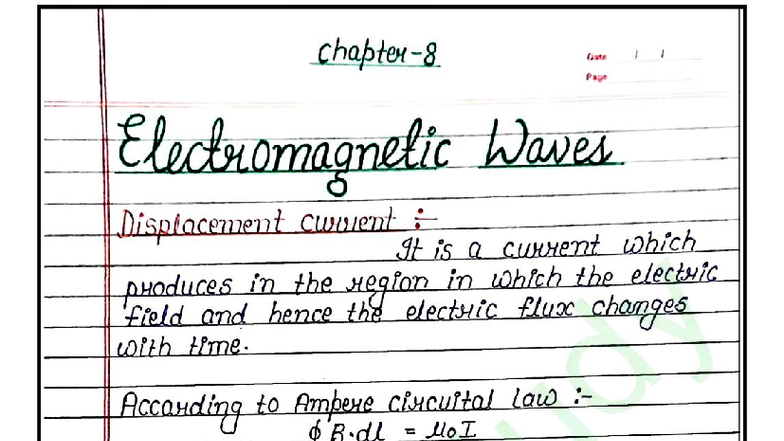 Chapter-8
Date
Page
Electromagnetic Waves
Displacement current :-
It is a current which
produces in the region in which the electric
field and hence the electric flux changes
with time.
According to Ampere circuital law :-
∮ B.dl = μ0I